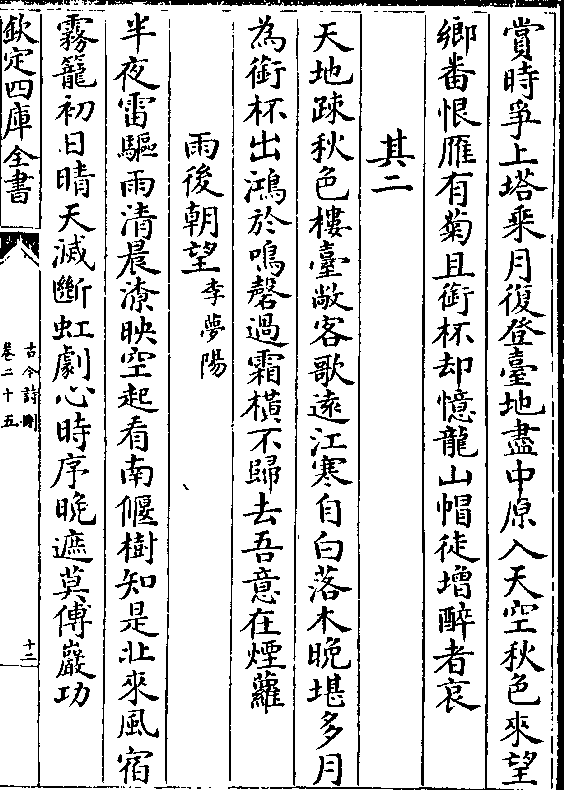 賞時爭上塔乘月復登臺地盡中原入天空秋色來望
鄉畨恨雁有菊且銜杯却憶龍山帽徒增醉者哀
其二
天地疎秋色樓臺敞客歌遠江寒自白落木晚堪多月
為銜杯出鴻於鳴磬過霜橫不歸去吾意在煙蘿
雨後朝望李夢陽
半夜雷驅雨清晨潦映空起看南偃樹知是北來風宿
霧籠初日晴天滅斷虹劇心時序晚遮莫傅巖功
欽定四庫全書
古今詩刪
卷二十五
十二